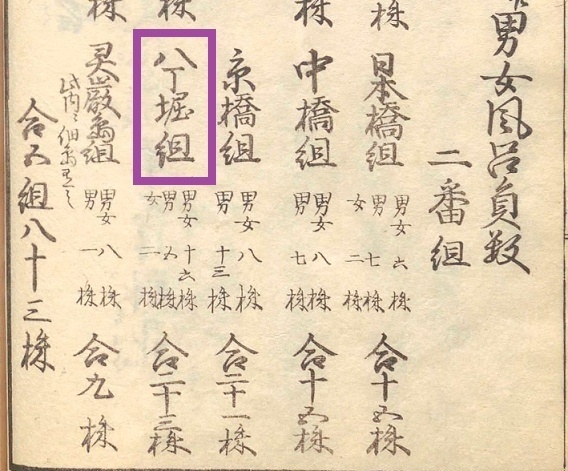 男女風呂員数
二番組
株
日本橋組
男女 六株
男 七株
女 二株
合十五株
株
中橋組
男女 八株
男 七株
合十五株
京橋組
男女 八株
男 十三株
合二十一株
株
八丁堀組
男女 十六株
男 五株
女 二株
合二十三株
株
灵巌嶋組
男女 八株
男 一株
合九株
此内ニ佃嶋有之
合五組八十三株